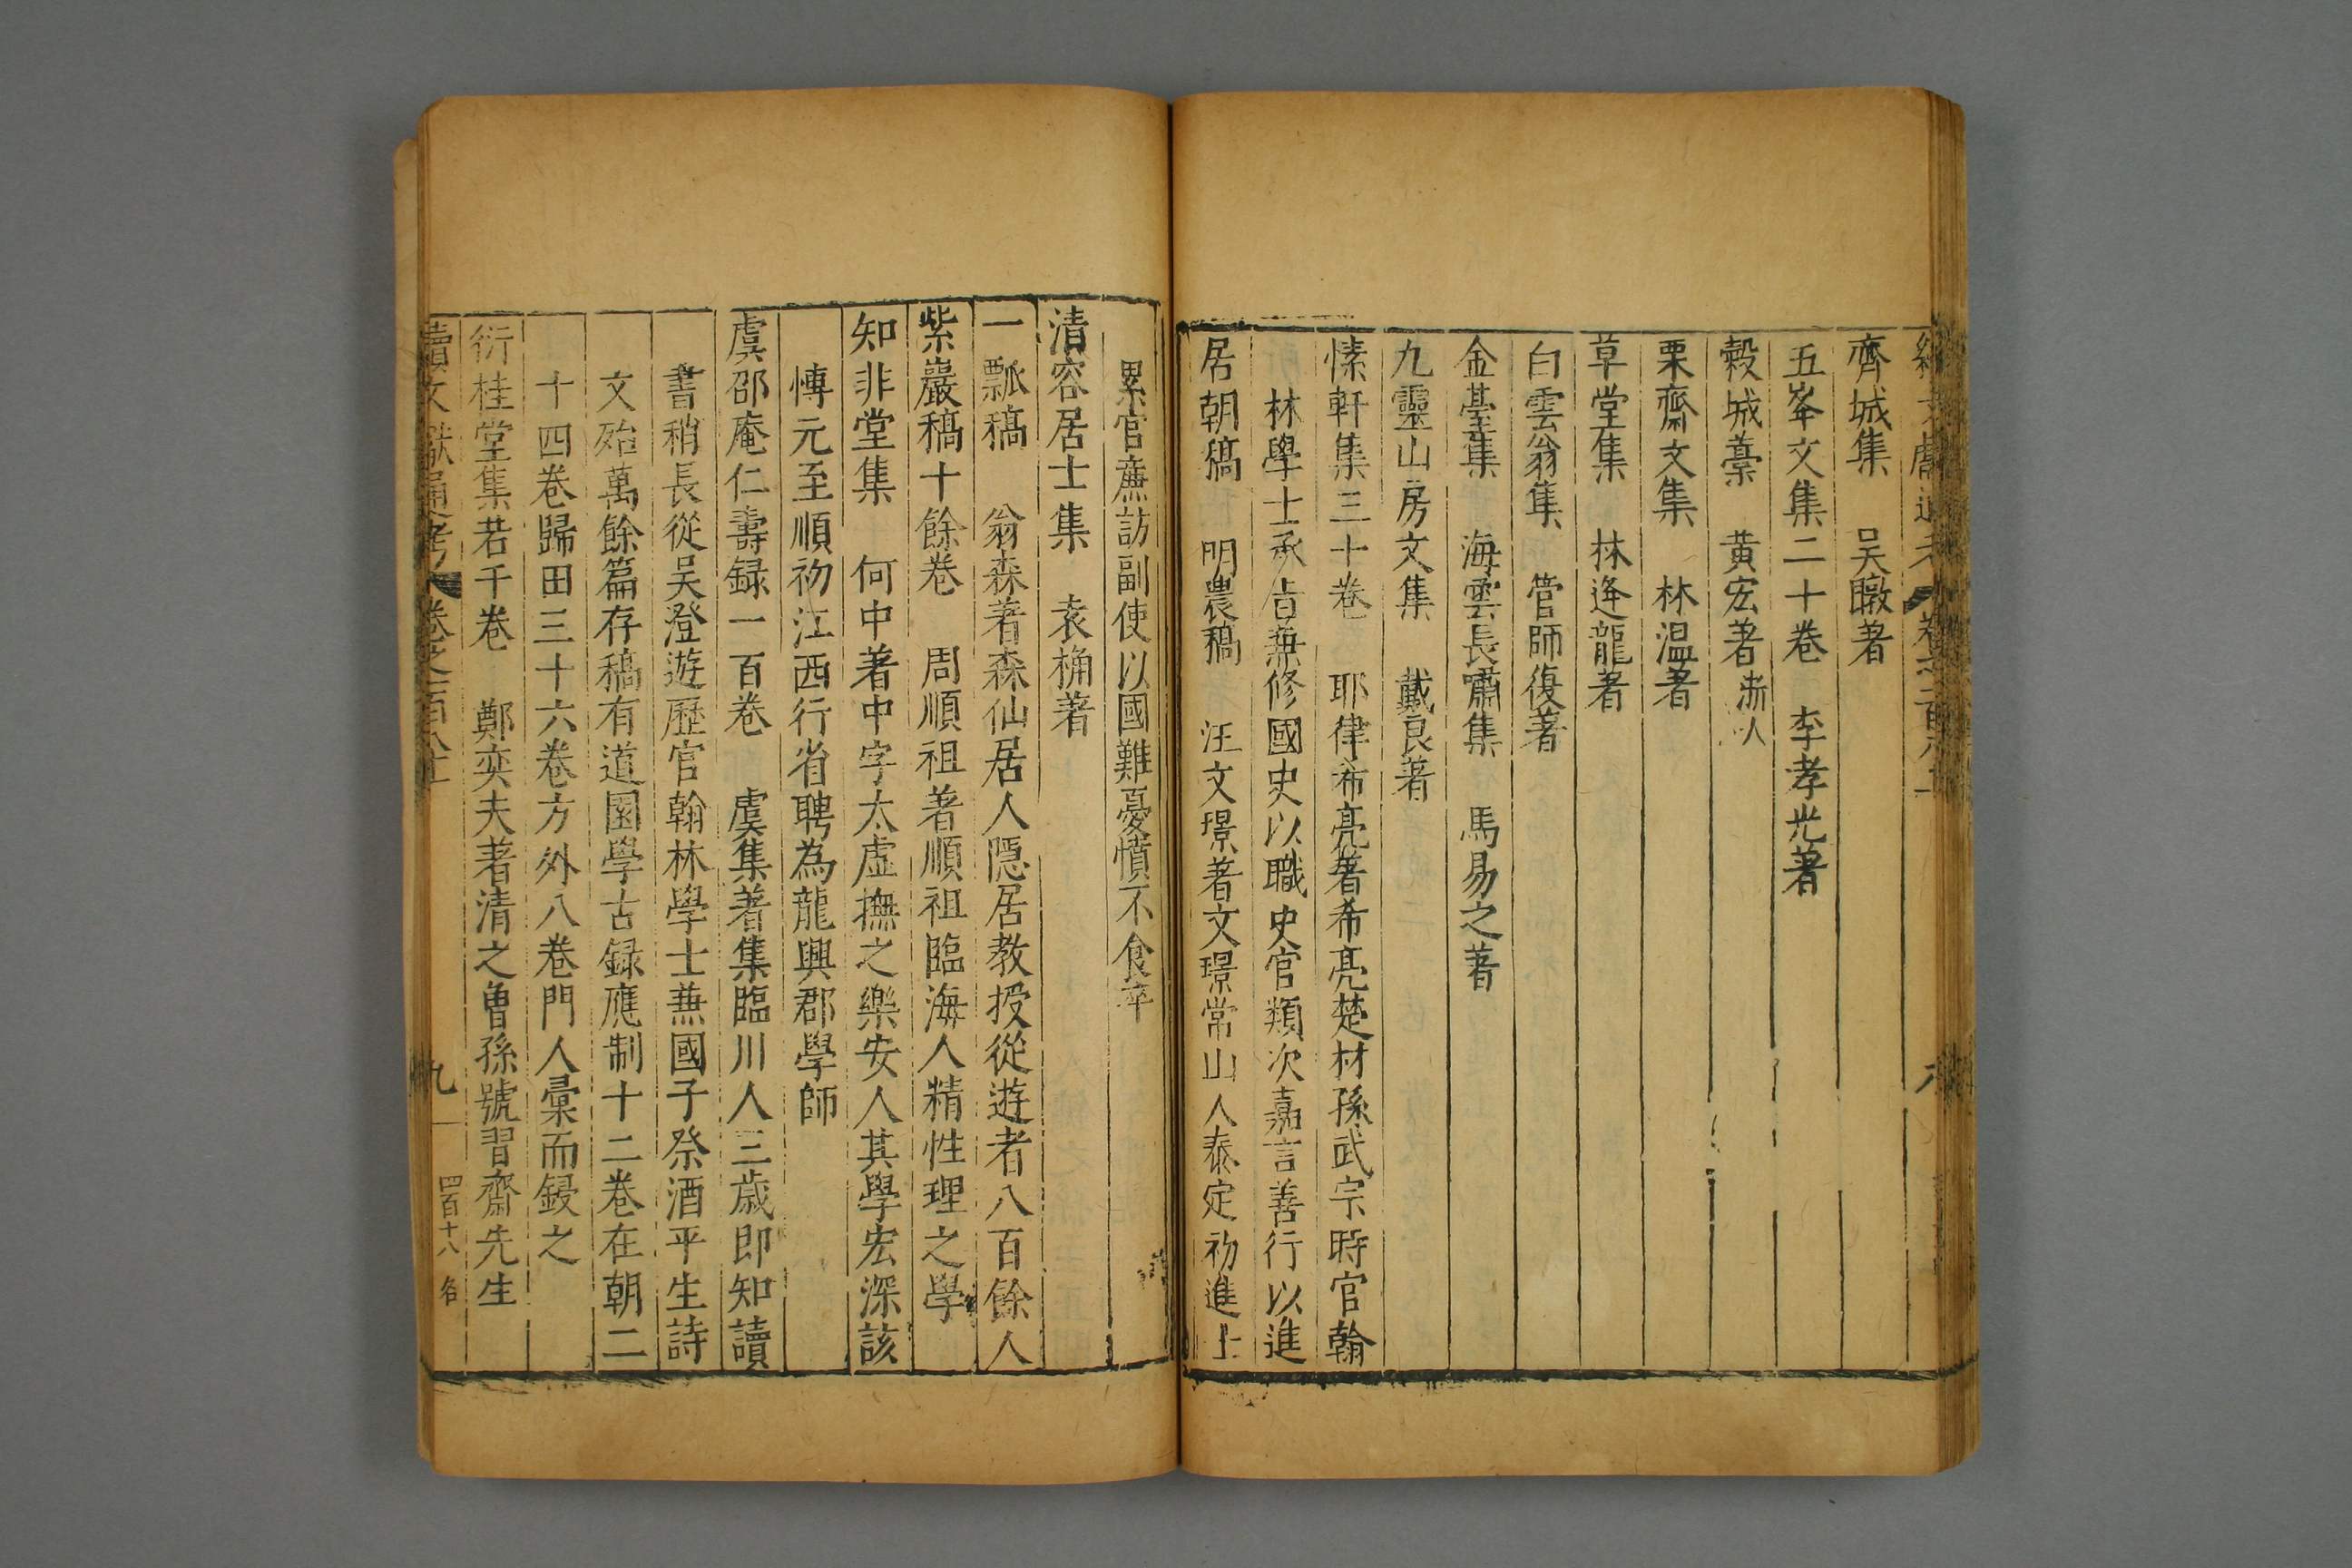 齊城集　吴暾著
五峯文集二十卷　李孝光著
榖城藁　黄宏著浙人
栗齋文集　林温著
草堂集　林逄龍著
白雲翁集　管師復著
金臺集　海雲長嘯集　馬易之著
九靈山房文集　戴良著
愫軒集三十卷　耶律希亮著希亮楚材孫武宗時官翰
林學士承㫖兼修國史以職史官類次嘉言善行以進
居朝稿　明農稿　汪文璟著文璟常山人泰定初進士
累官廉訪副使以國難憂憤不食卒
清容居士集　袁桷著
一瓢稿　翁森著森仙居人隠居教授從遊者八百餘人
紫巖稿十餘巻　周順祖著順祖臨海人精性理之學
知非堂集　何中著中字太虚撫之樂安人其學宏深該
博元至順初江西行省聘為龍興郡學師
虞邵庵仁壽録一百巻　虞集著集臨川人三歳即知讀
書稍長從吴澄遊歷官翰林學士兼國子祭酒平生詩
文殆萬餘篇存稿有道園學古録應制十二巻在朝二
十四巻歸田三十六巻方外八巻門人彙而鋟之
衍桂堂集若干巻　鄭奕夫著清之曾孫號習齋先生
續文獻通考　卷之一百八十　九　四百十八　名